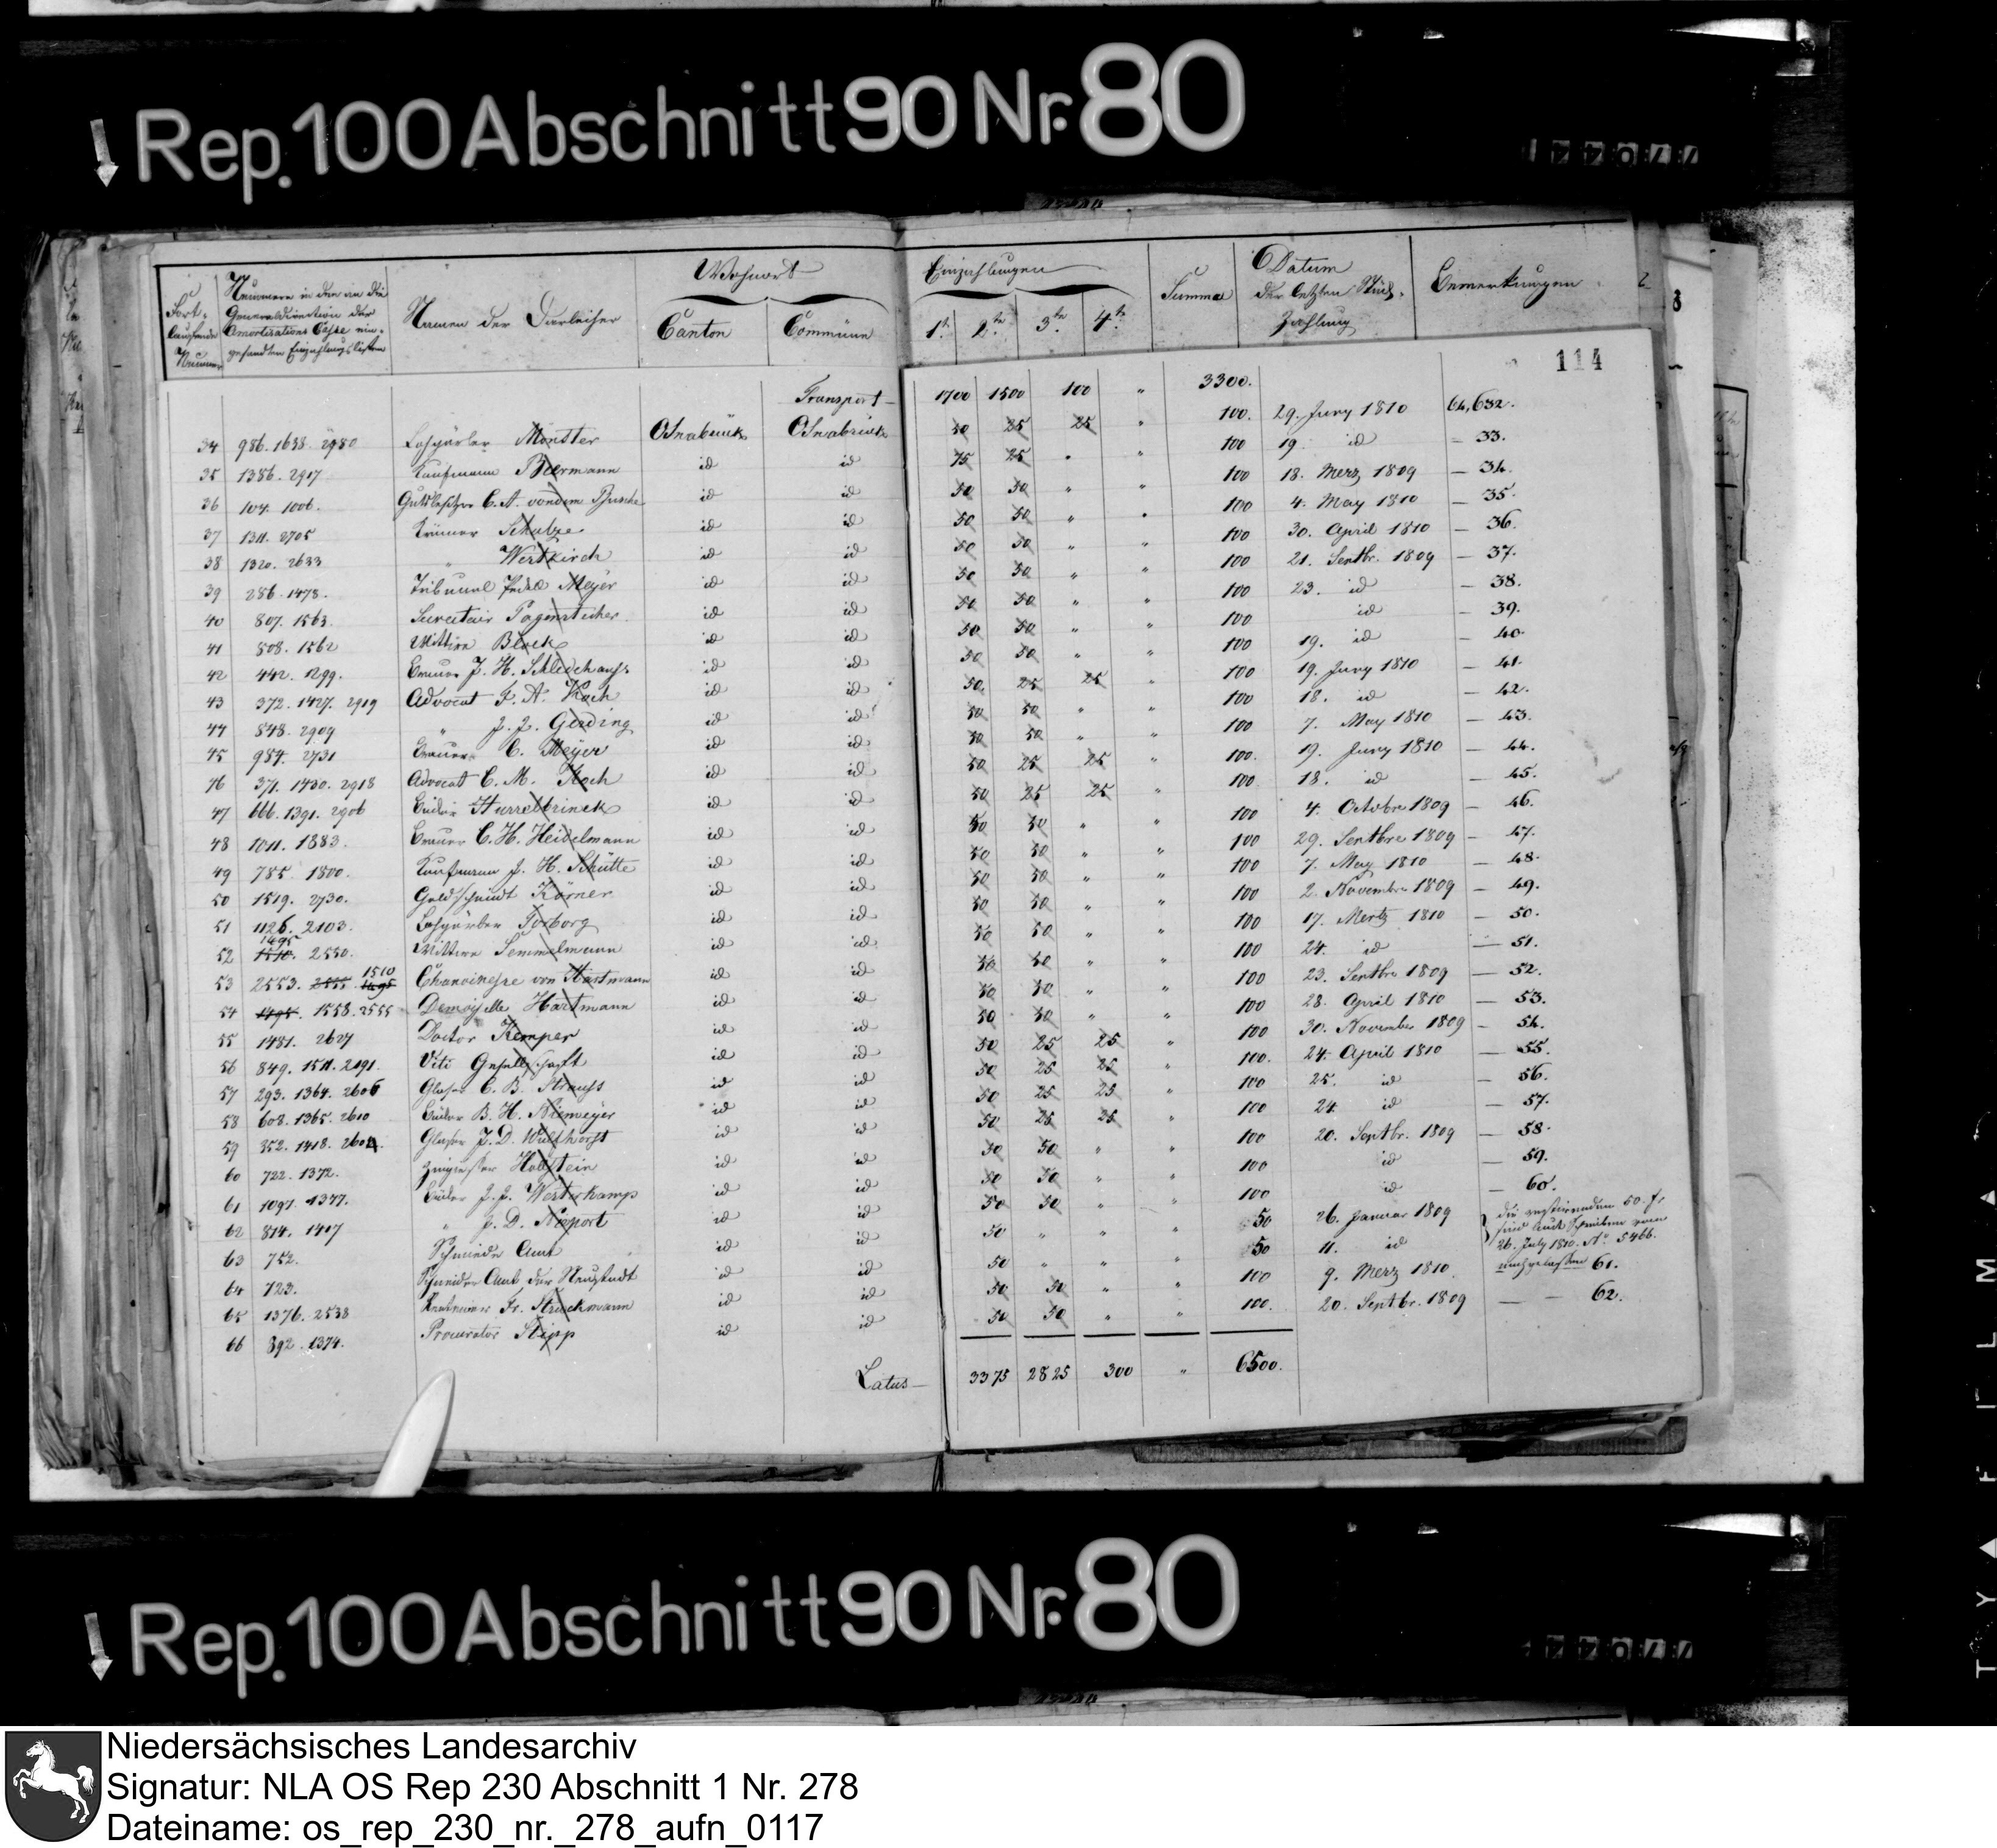 Rep. 100 Abschnitt 90 Nr. 80
114
Fort-laufende Nummer | Nummern in den an die Generaldirection der Amortisations Casse ein-gesandten Einzahlungslisten | Namen der Darleiher | Wohnort | Canton | Commüne | Einzahlungen | 1te | 2te | 3te | 4te | Summa | Datum der letzten Stück-Zahlung | Bemerkungen
Transport 1700 1500 100 " 3300.
34 986. 1638. 2980 Lohgärber Mönster Osnabrück Osnabrück 50 25 25 " 100. 29. Juny 1810 64,632.
35 1386. 2917 Kaufmann Biermann id id 75 25 " " 100 19. id — 33.
36 104. 1006. Gutsbesitzer C. A. von dem Bussche id id 50 50 " " 100 18. Merz 1809 — 34.
37 1311. 2705 Krämer Schulze id id 50 50 " " 100 4. May 1810 — 35.
38 1320. 2633 " Westkirch id id 50 50 " " 100 30. April 1810 — 36.
39 286. 1478. Tribunal Pedell Meyer id id 50 50 " " 100 21. Septbr. 1809 — 37.
40 807. 1563. Secretair Pagenstecher id id 50 50 " " 100 23. id — 38.
41 808. 1562 Wittwe Block id id 50 50 " " 100 id — 39.
42 442. 1299. Brauer J. H. Schledehaus id id 50 50 " " 100 19. id — 40.
43 372. 1427. 2919 Advocat F. A. Koch id id 50 25 25 " 100 19. Juny 1810 — 41.
44 848. 2909 " J. J. Gerding id id 50 50 " " 100 18. id — 42.
45 984. 2731 Brauer C. Meyer id id 50 50 " " 100 7. May 1810 — 43.
46 371. 1430. 2918 Advocat C. M. Koch id id 50 25 25 " 100. 19. Juny 1810 — 44.
47 666. 1391. 2906 Hurrelbrinck id id 50 25 25 " 100 18. id — 45.
48 1011. 1883. Brauer C. H. Heidelmann id id 50 50 " " 100 4. Octobr 1809 — 46.
49 785 1800. Kaufmann J. H. Schütte id id 50 50 " " 100 29. Septbre 1809 — 47.
50 1519. 2730. Goldschmidt Körner id id 50 50 " " 100 7. May 1810 — 48.
51 1126. 2103. Lohgärber Torborg id id 50 50 " " 100 2. Novembr 1809 — 49.
52 1510. 1495 2550. Wittwe Semmelmann id id 50 50 " " 100 17. Mertz 1810 — 50.
53 2553. 2555 1495 1510 Chanoinesse von Hartmann id id 50 50 " " 100 24. id — 51.
54 1495. 1558. 2555 Demoiselle Hartmann id id 50 50 " " 100 23. Septbre 1809 — 52.
55 1481. 2627 Doctor Kemper id id 50 50 " " 100 28. April 1810 — 53.
56 849. 1511. 2191. Viti Gesellschaft id id 50 25 25 " 100 30. November 1809 — 54.
57 293. 1364. 2606 Glaser C. B. Strauss id id 50 25 25 " 100. 24. April 1810 — 55.
58 608. 1365. 2610 B. H. Niemeyer id id 50 25 25 " 100 25. id — 56.
59 352. 1418. 2604. Glaser J. D. Wulfhorst id id 50 25 25 " 100 24. id — 57.
60 722. 1372. Zingiesser Hollstein id id 50 50 " " 100 20. Septbr. 1809 — 58.
61 1097. 1377. J. J. Westerkamp id id 50 50 " " 100 id — 59.
62 814. 1407 " J. D. Nieport id id 50 50 " " 100 id — 60.
63 752. Schmiede Amt id id 50 " " " 50 26. Januar 1809 die restirenden 50 fr
sind laut Schreiben vom
64 723. Schneider Amt der Neustadt id id 50 " " " 50 11. id 26. July 1810. No 5466.
nachgelassen
65 1376. 2538 Rentenier Fr. Struckmann id id 50 50 " " 100 9. Merz 1810 61.
66 392. 1374. Procurator Stipp id id 50 50 " " 100. 20. Septbr. 1809 — 62.
Latus 3375 2825 300 " 6500.
Rep. 100 Abschnitt 90 Nr. 80
Niedersächsisches Landesarchiv
Signatur: NLA OS Rep 230 Abschnitt 1 Nr. 278
Dateiname: os_rep_230_nr._278_aufn_0117